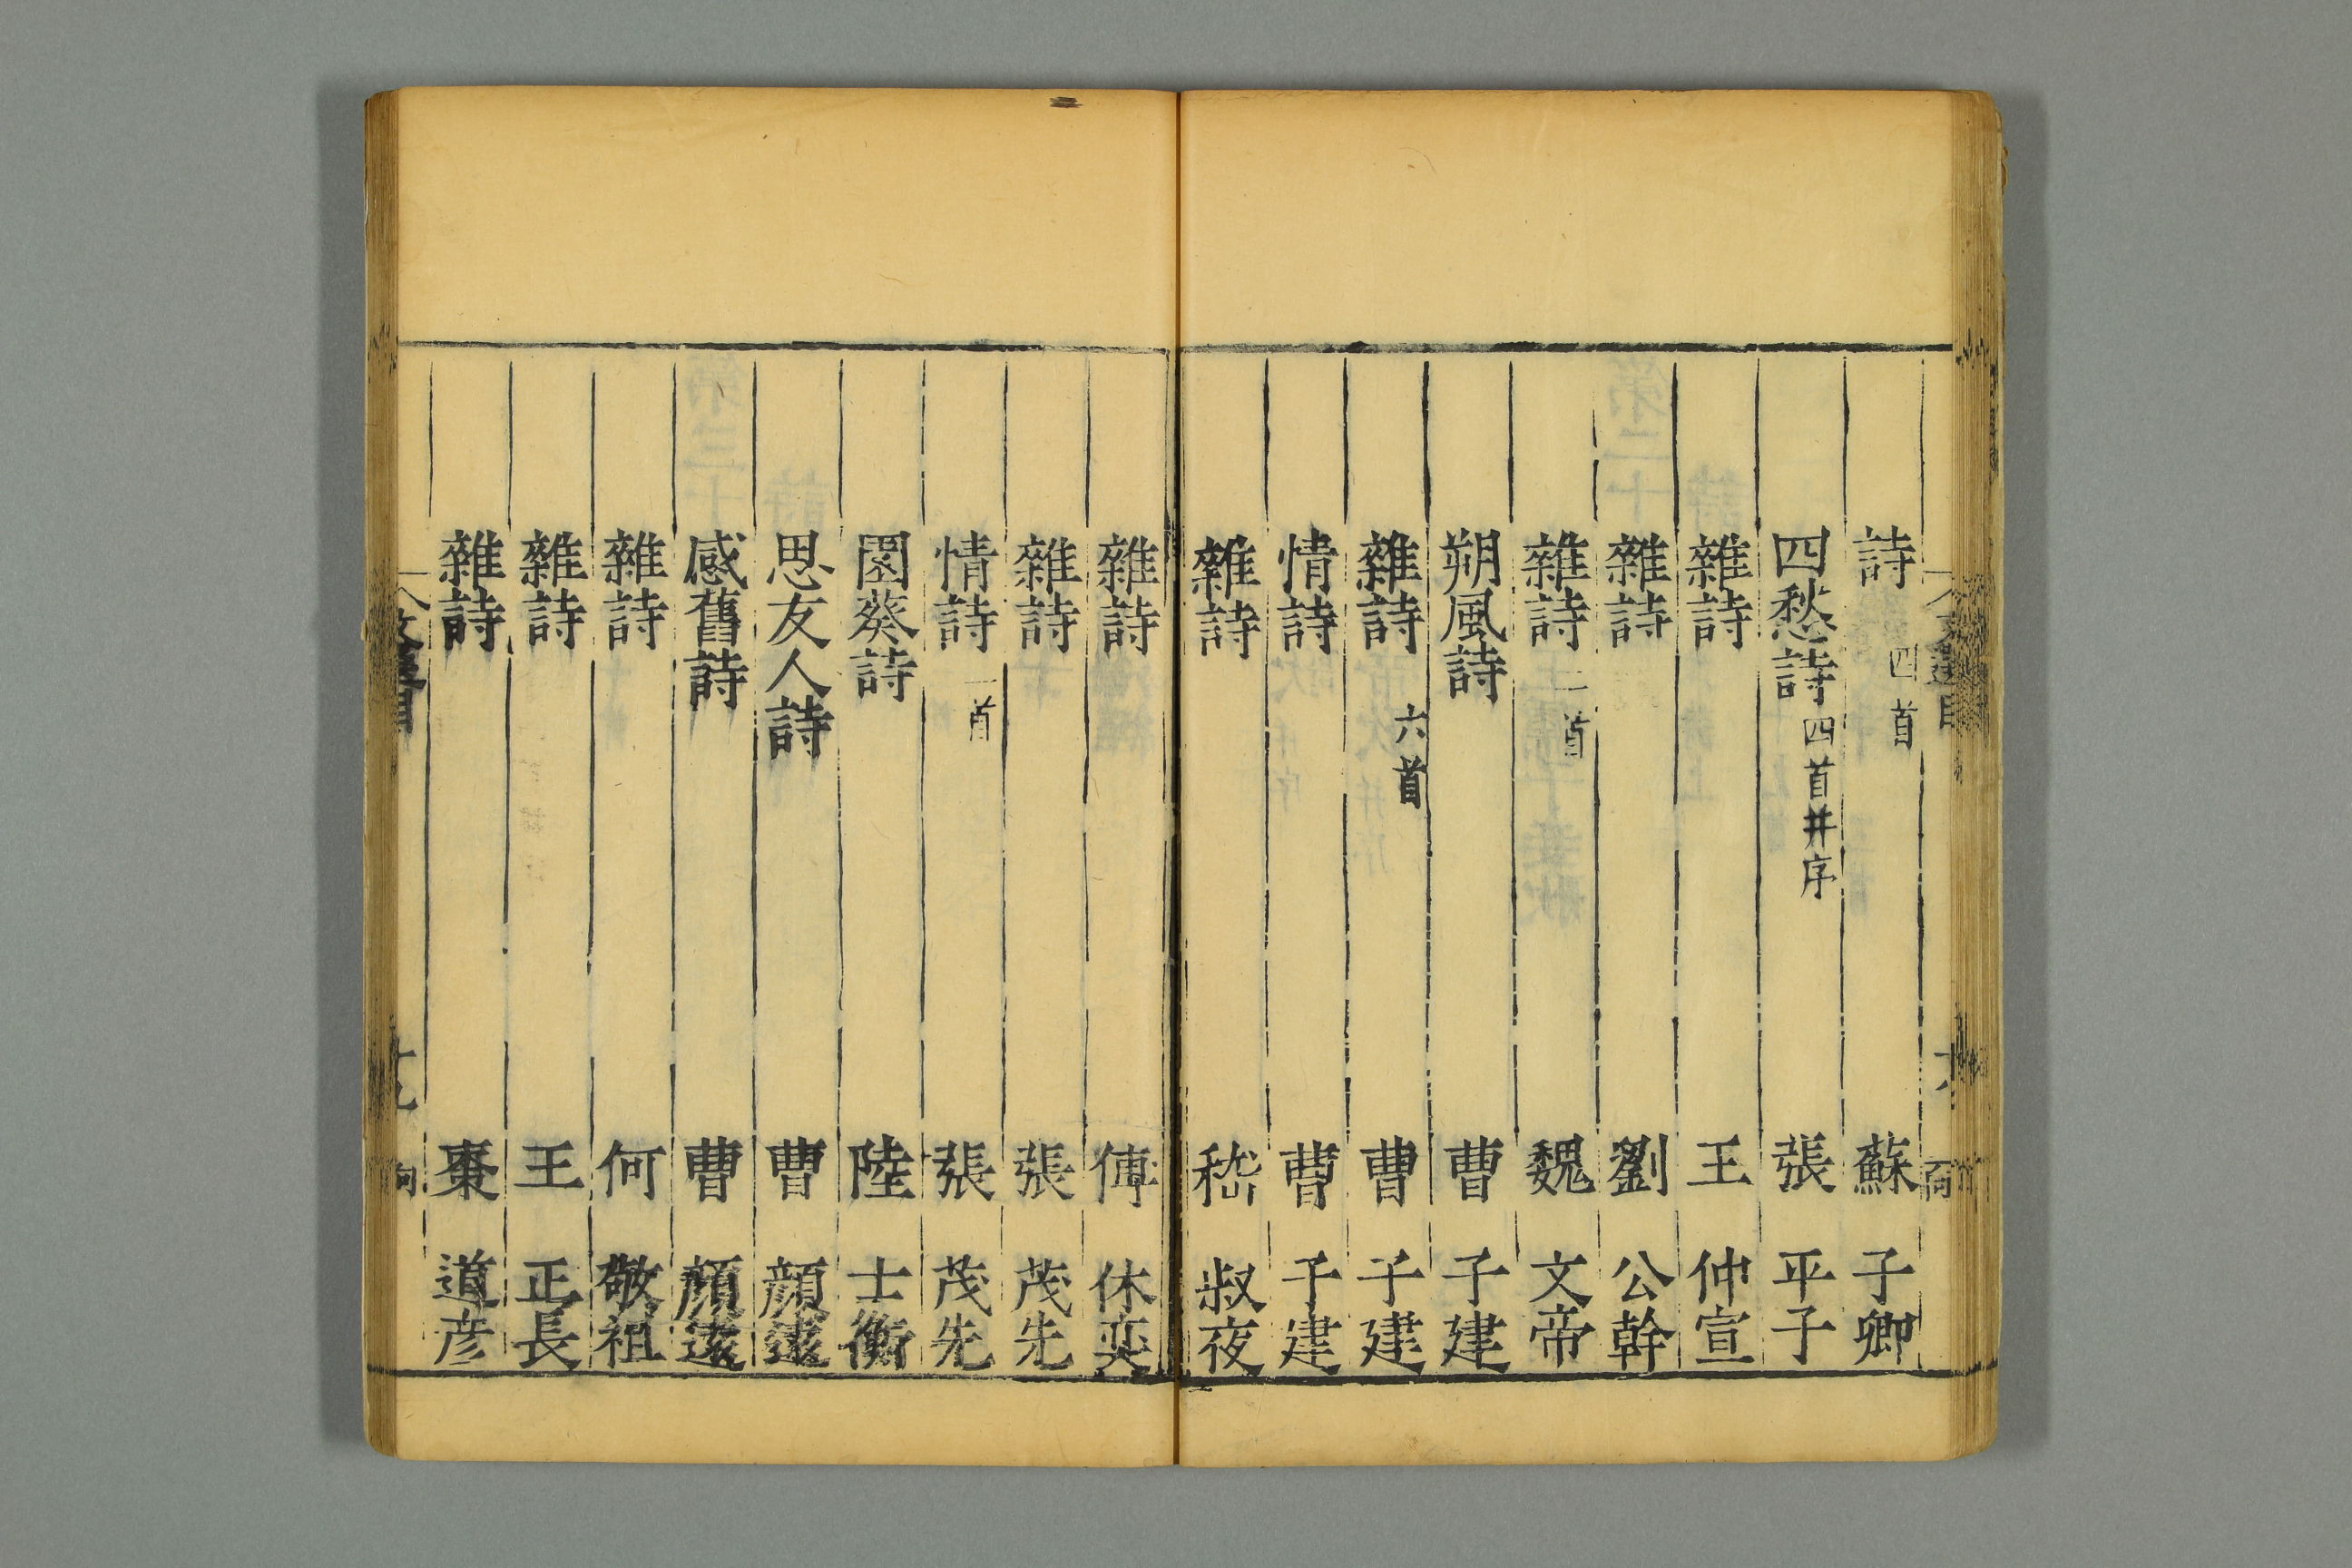 詩 四首 蘇 子卿
四愁詩 四首并序 張 平子
雜詩 王 仲宣
雜詩 劉 公幹
雜詩 二首 魏 文帝
朔風詩 曹 子建
雜詩 六首 曹 子建
情詩 曹 子建
雜詩 嵇 叔夜
雜詩 傅 休奕
雜詩 張 茂先
情詩 二首 張 茂先
園葵詩 陸 士衡
思友人詩 曹 顏遠
感舊詩 曹 顏遠
雜詩 何 敬祖
雜詩 王 正長
雜詩 棗 道彦